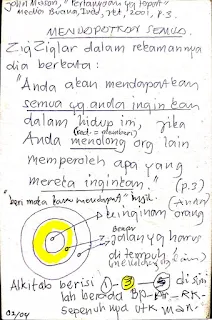 John Mason, "Pertanyaan yg tepat"
Media Buana, Ind, 2001, p.3.
MENDAPATKAN SEMUA.
Zig Ziglar dalam rekamannya
dia berkata:
"Anda akan mendapatkan
semua yg anda inginkan
dalam hidup ini, jika
Anda menolong org lain
memperoleh apa yang
mereka inginkan."
(p.3)
"beri maka kamu mendapat"
keinginan orang
jalan yg harus
di tempuh
Alkitab berisi 1 - 3 - disini
lah berada BP-
sepenuhnya utk man.